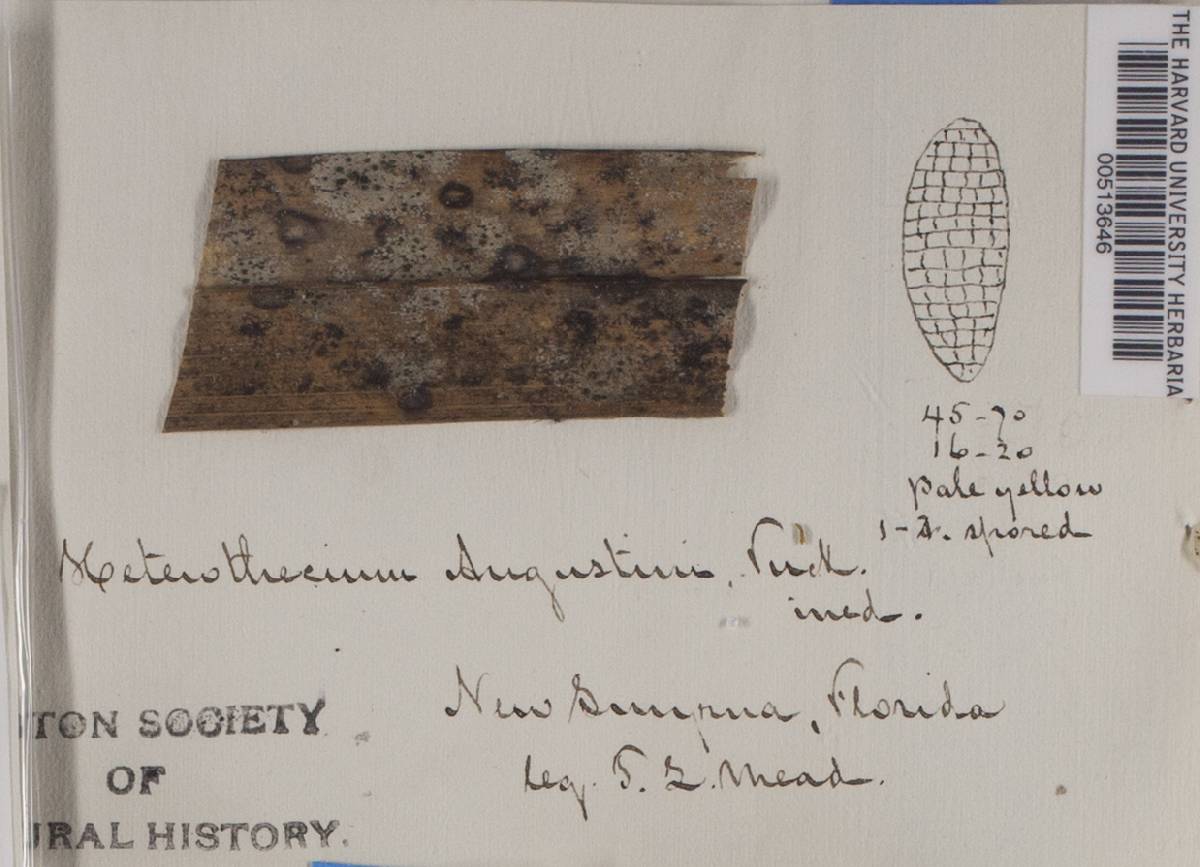 THE HARVARD UNIVERSITY HERBARIA
00513646
45-70
16-20
pale yellow
spored
Heterothecium Augustini, Tuck.
ined.
New Smyrna, Florida
leg. T. L. Mead.
TON SOCIETY
OF
URAL HISTORY.